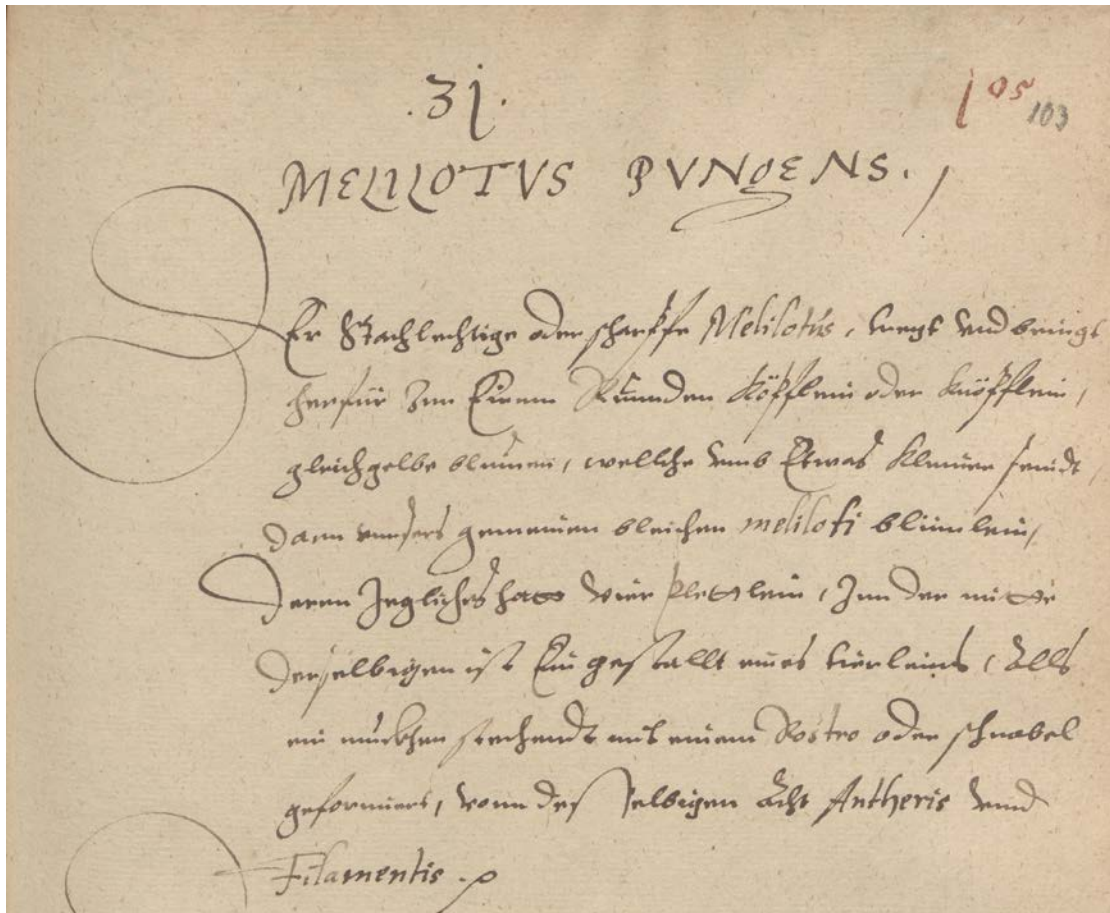 .31.
105
103
MELILOTVS PVNGENS.
Der Stachlechtige oder scharpffe Melilotus, tregt vnd bringt
herfür Inn Einem Runden köpfflein oder knöpfflein,
gleichgelbe blumen, wellche vmb Etwas kleiner seindt,
dann vnsers gemeinen bleichen meliloti blümlein,
deren Jegliches hatt vier plettlein, Inn der mitte
derselbigen ist Ein gestallt eines tierleins, Alls
ein muckhen stechendt mit einem Rostro oder schnabel
geformiert, vonn desselbigen Acht Antheris vnnd
Filamentis.